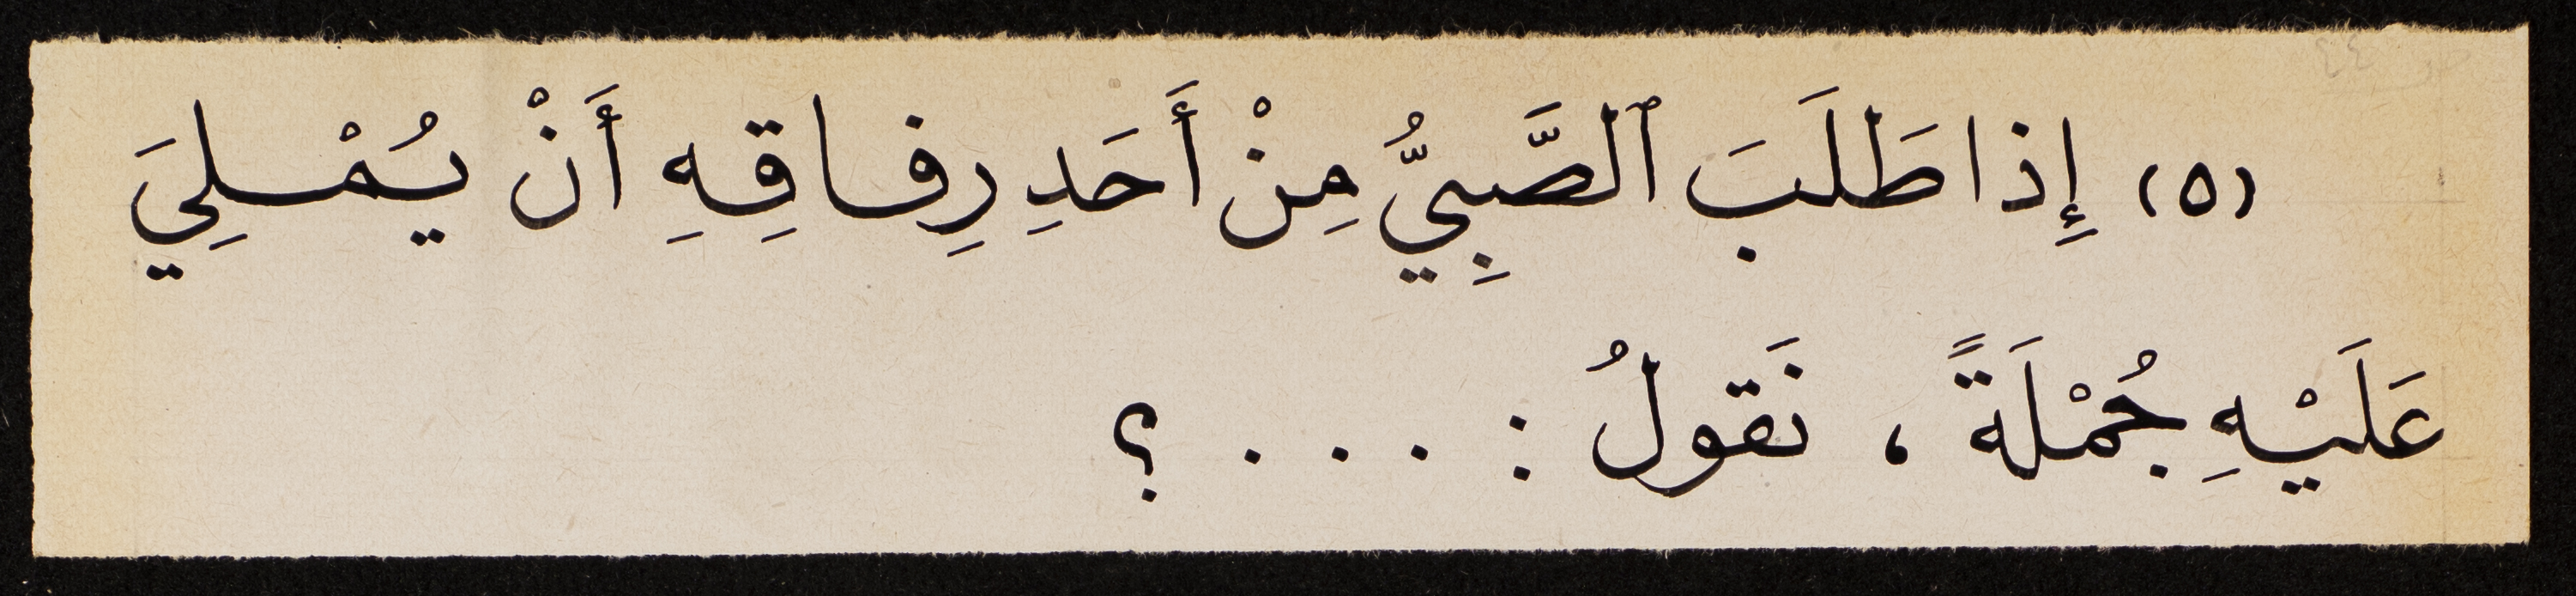 (٥) إِذا طَلَبَ ٱلصَّبِيُّ مِنْ أَحَدِ رِفاقِهِ أَنْ يُمْلِيَ
عَلَيْهِ جُمْلَةً ، نَقولُ : . . . ؟